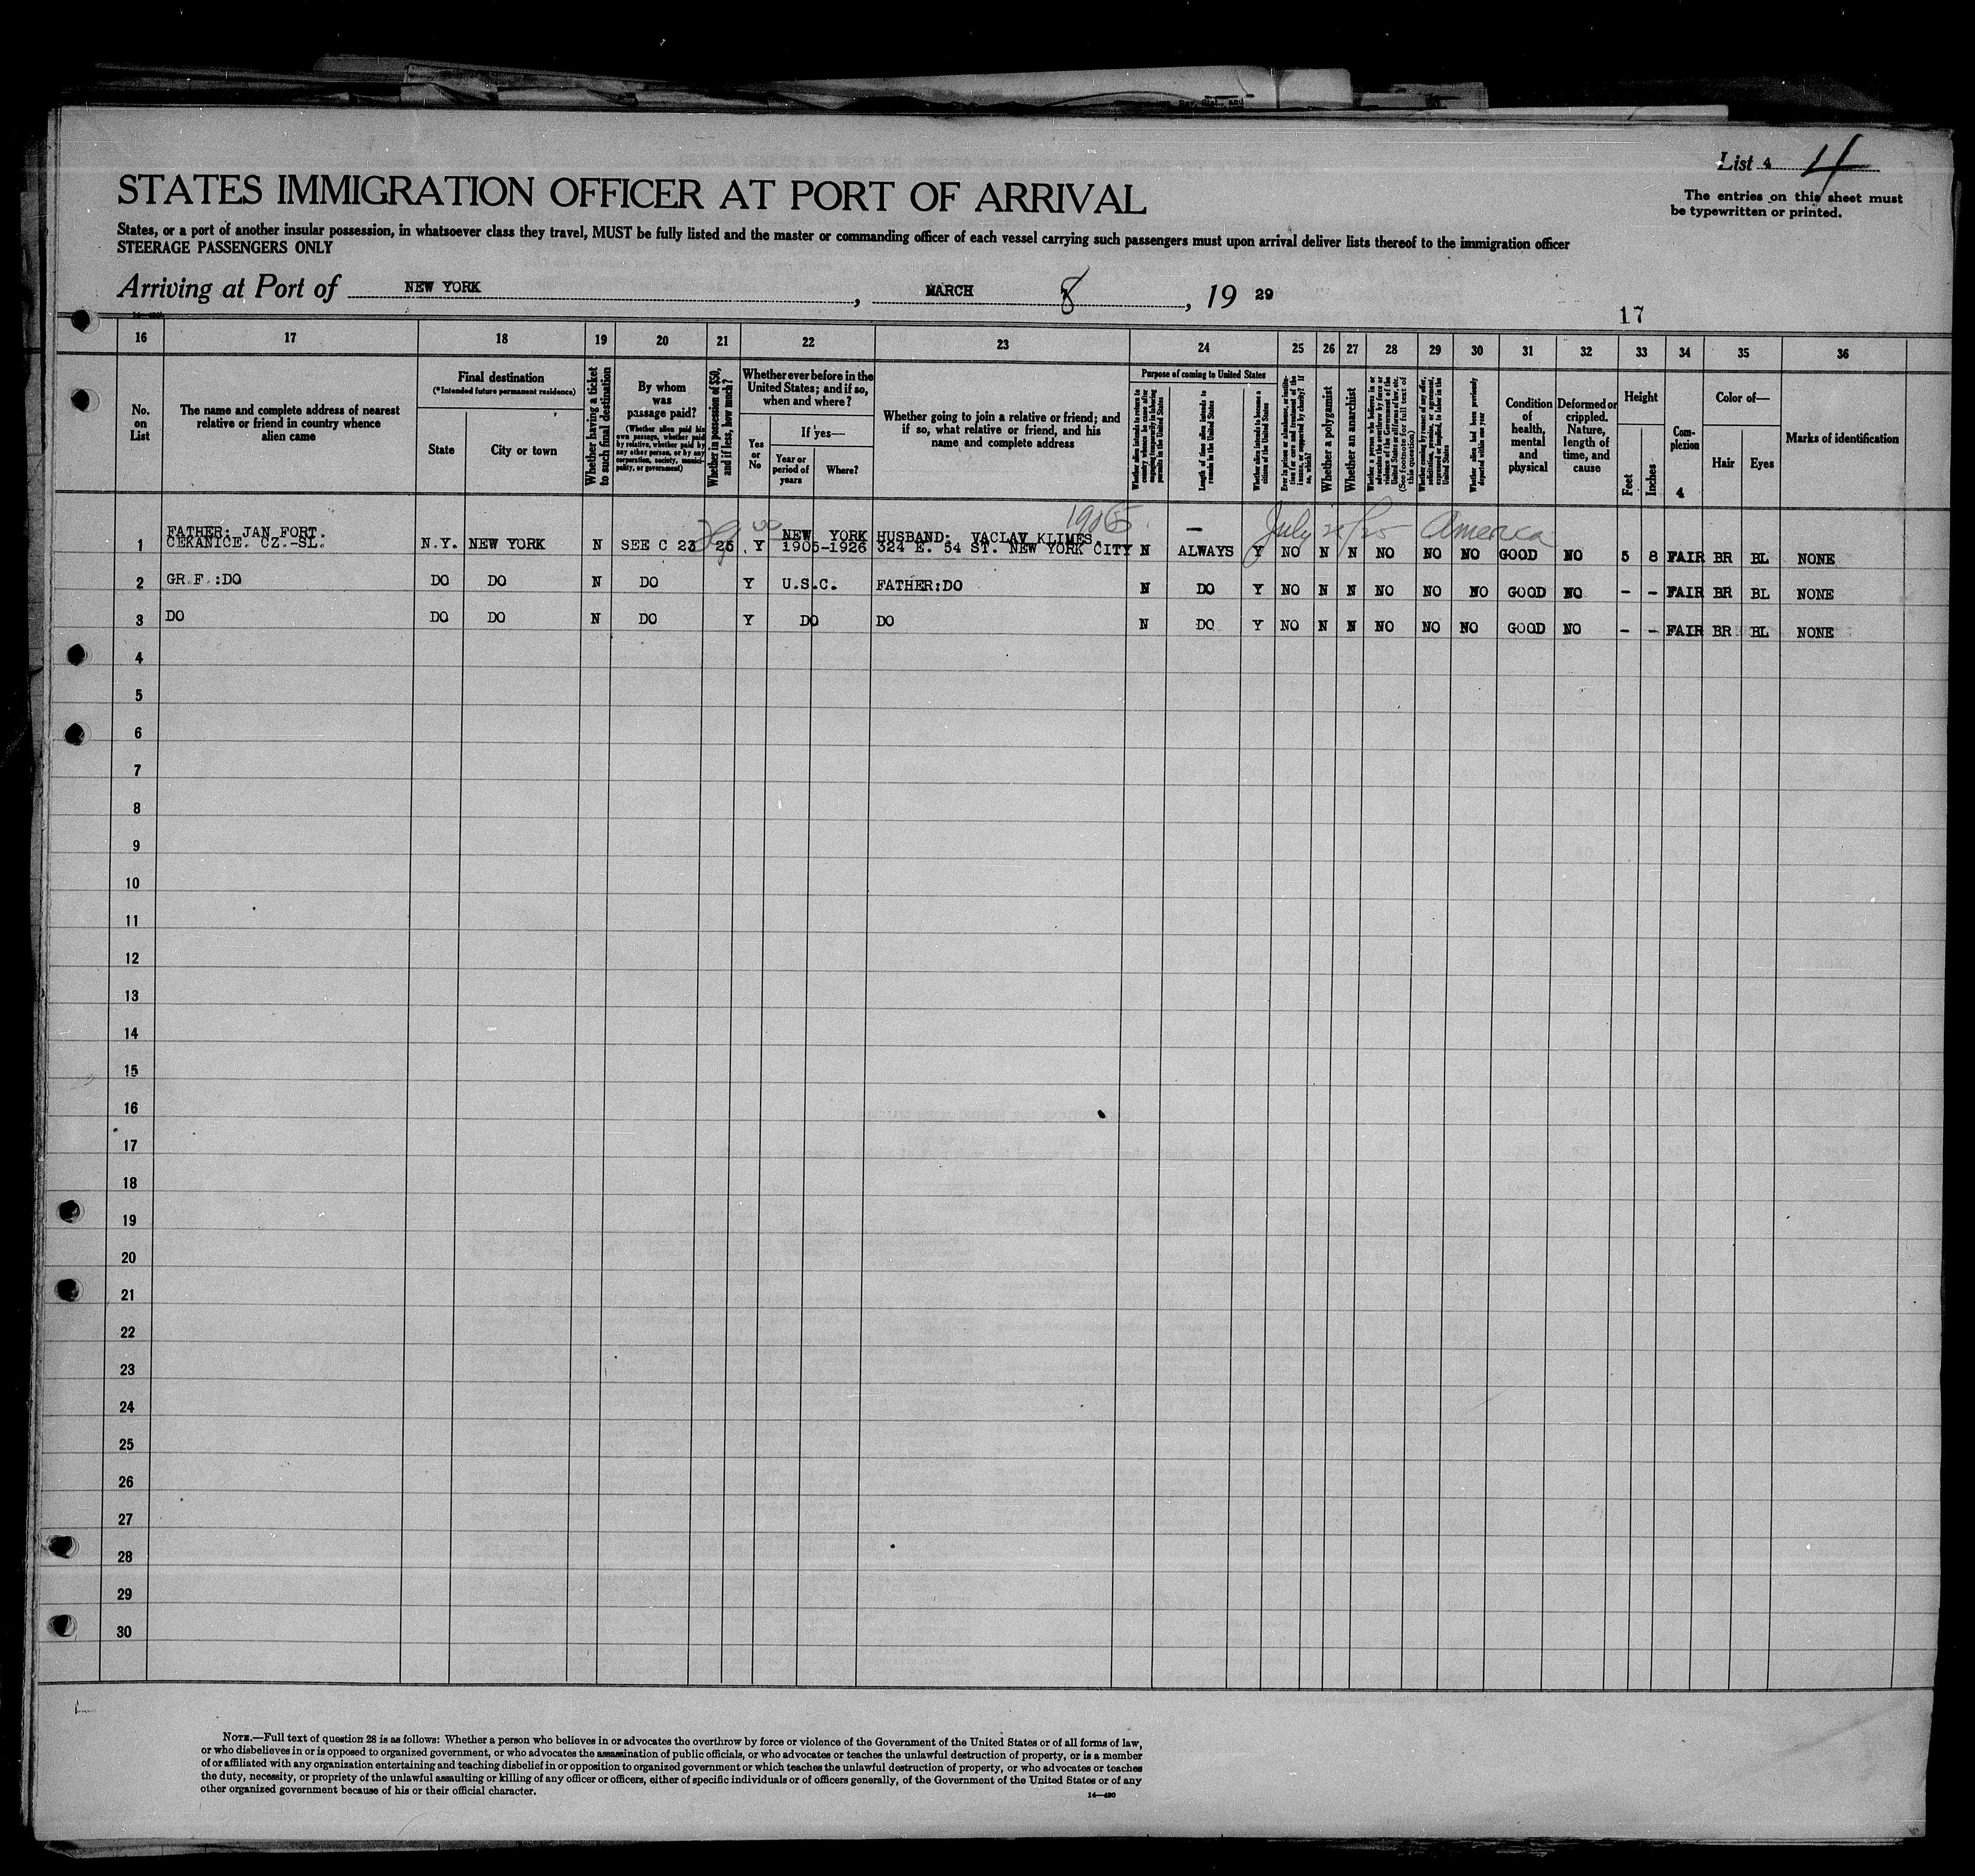 List 4 4
The entries on this sheet must
be typewritten or printed.
STATES IMMIGRATION OFFICER AT PORT OF ARRIVAL
States, or a port of another insular possession, in whatsoever class they travel, MUST be fully listed and the master or commanding officer of each vessel carrying such passengers must upon arrival deliver lists thereof to the immigration officer
STEERAGE PASSENGERS ONLY
Arriving at Port of NEW YORK, MARCH 8, 19 29
17
16 17 18 19 20 21 22 23 24 25 26 27 28 29 30 31 32 33 34 35 36
No. on List
The name and complete address of nearest relative or friend in country whence alien came
Final destination
(*Intended future permanent residence)
State
City or town
Whether having a ticket to such final destination
By whom was passage paid?
(Whether alien paid his own passage, whether paid by relative, whether paid by any other person, or by any corporation, society, municipality, or government)
Whether in possession of $50, and if less, how much?
Whether ever before in the United States; and if so, when and where?
Yes or No
If yes—
Year or period of years
Where?
Whether going to join a relative or friend; and if so, what relative or friend, and his name and complete address
Purpose of coming to United States
Whether alien intends to return to country whence he came after engaging temporarily in laboring pursuits in the United States
Length of time alien intends to remain in the United States
Whether alien intends to become a citizen of the United States
Ever in prison or almshouse, or institution for care and treatment of the insane, or supported by charity? If so, which?
Whether a polygamist
Whether an anarchist
Whether a person who believes in or advocates the overthrow by force or violence of the Government of the United States or all forms of law, etc. (See footnote for full text of this question)
Whether coming by reason of any offer, solicitation, promise, or agreement, expressed or implied, to labor in the United States
Whether alien had been previously deported within one year
Condition of health, mental and physical
Deformed or crippled. Nature, length of time, and cause
Height
Feet
Inches
Complexion
4
Color of—
Hair
Eyes
Marks of identification
1905 — July 25 America
FATHER: JAN FORT. NEW YORK HUSBAND: VACLAV KLIMES.
1 CEKANICE. CZ.-SL. N.Y. NEW YORK N SEE C 23 25 Y 1905-1926 324 E. 54 ST. NEW YORK CITY N ALWAYS Y NO N N NO NO NO GOOD NO 5 8 FAIR BR BL NONE
2 GR.F.:DO DO DO N DO Y U.S.C. FATHER:DO N DO Y NO N N NO NO NO GOOD NO - - FAIR BR BL NONE
3 DO DO DO N DO Y DO DO N DO Y NO N N NO NO NO GOOD NO - - FAIR BR BL NONE
4
5
6
7
8
9
10
11
12
13
14
15
16
17
18
19
20
21
22
23
24
25
26
27
28
29
30
NOTE.—Full text of question 28 is as follows: Whether a person who believes in or advocates the overthrow by force or violence of the Government of the United States or of all forms of law,
or who disbelieves in or is opposed to organized government, or who advocates the assassination of public officials, or who advocates or teaches the unlawful destruction of property, or is a member
of or affiliated with any organization entertaining and teaching disbelief in or opposition to organized government or which teaches the unlawful destruction of property, or who advocates or teaches
the duty, necessity, or propriety of the unlawful assaulting or killing of any officer or officers, either of specific individuals or of officers generally, of the Government of the United States or of any
other organized government because of his or their official character.
14—430